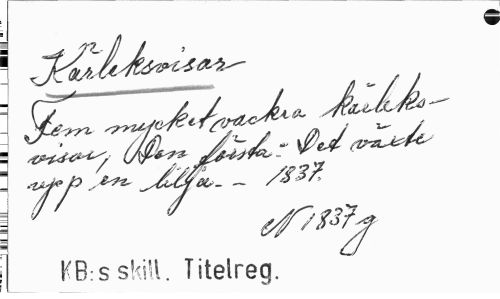 Kärleksvisor
Fem mycket vackra kärleks-
visor, Den första: Det växte
upp en lilja. - 1837.
N 1837 g
KB:s skill. Titelreg.